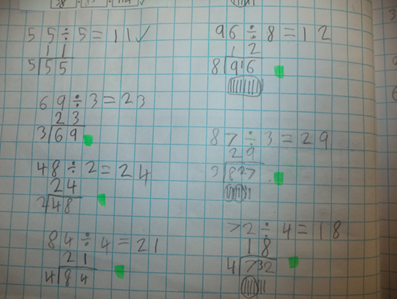 55÷5=11✓
11
5|55
69÷3=23
23
3|69
48÷2=24
24
2|48
84÷4=21
21
4|84
96÷8=12
12
8|916
87÷3=29
29
3|827
72÷4=18
18
4|732